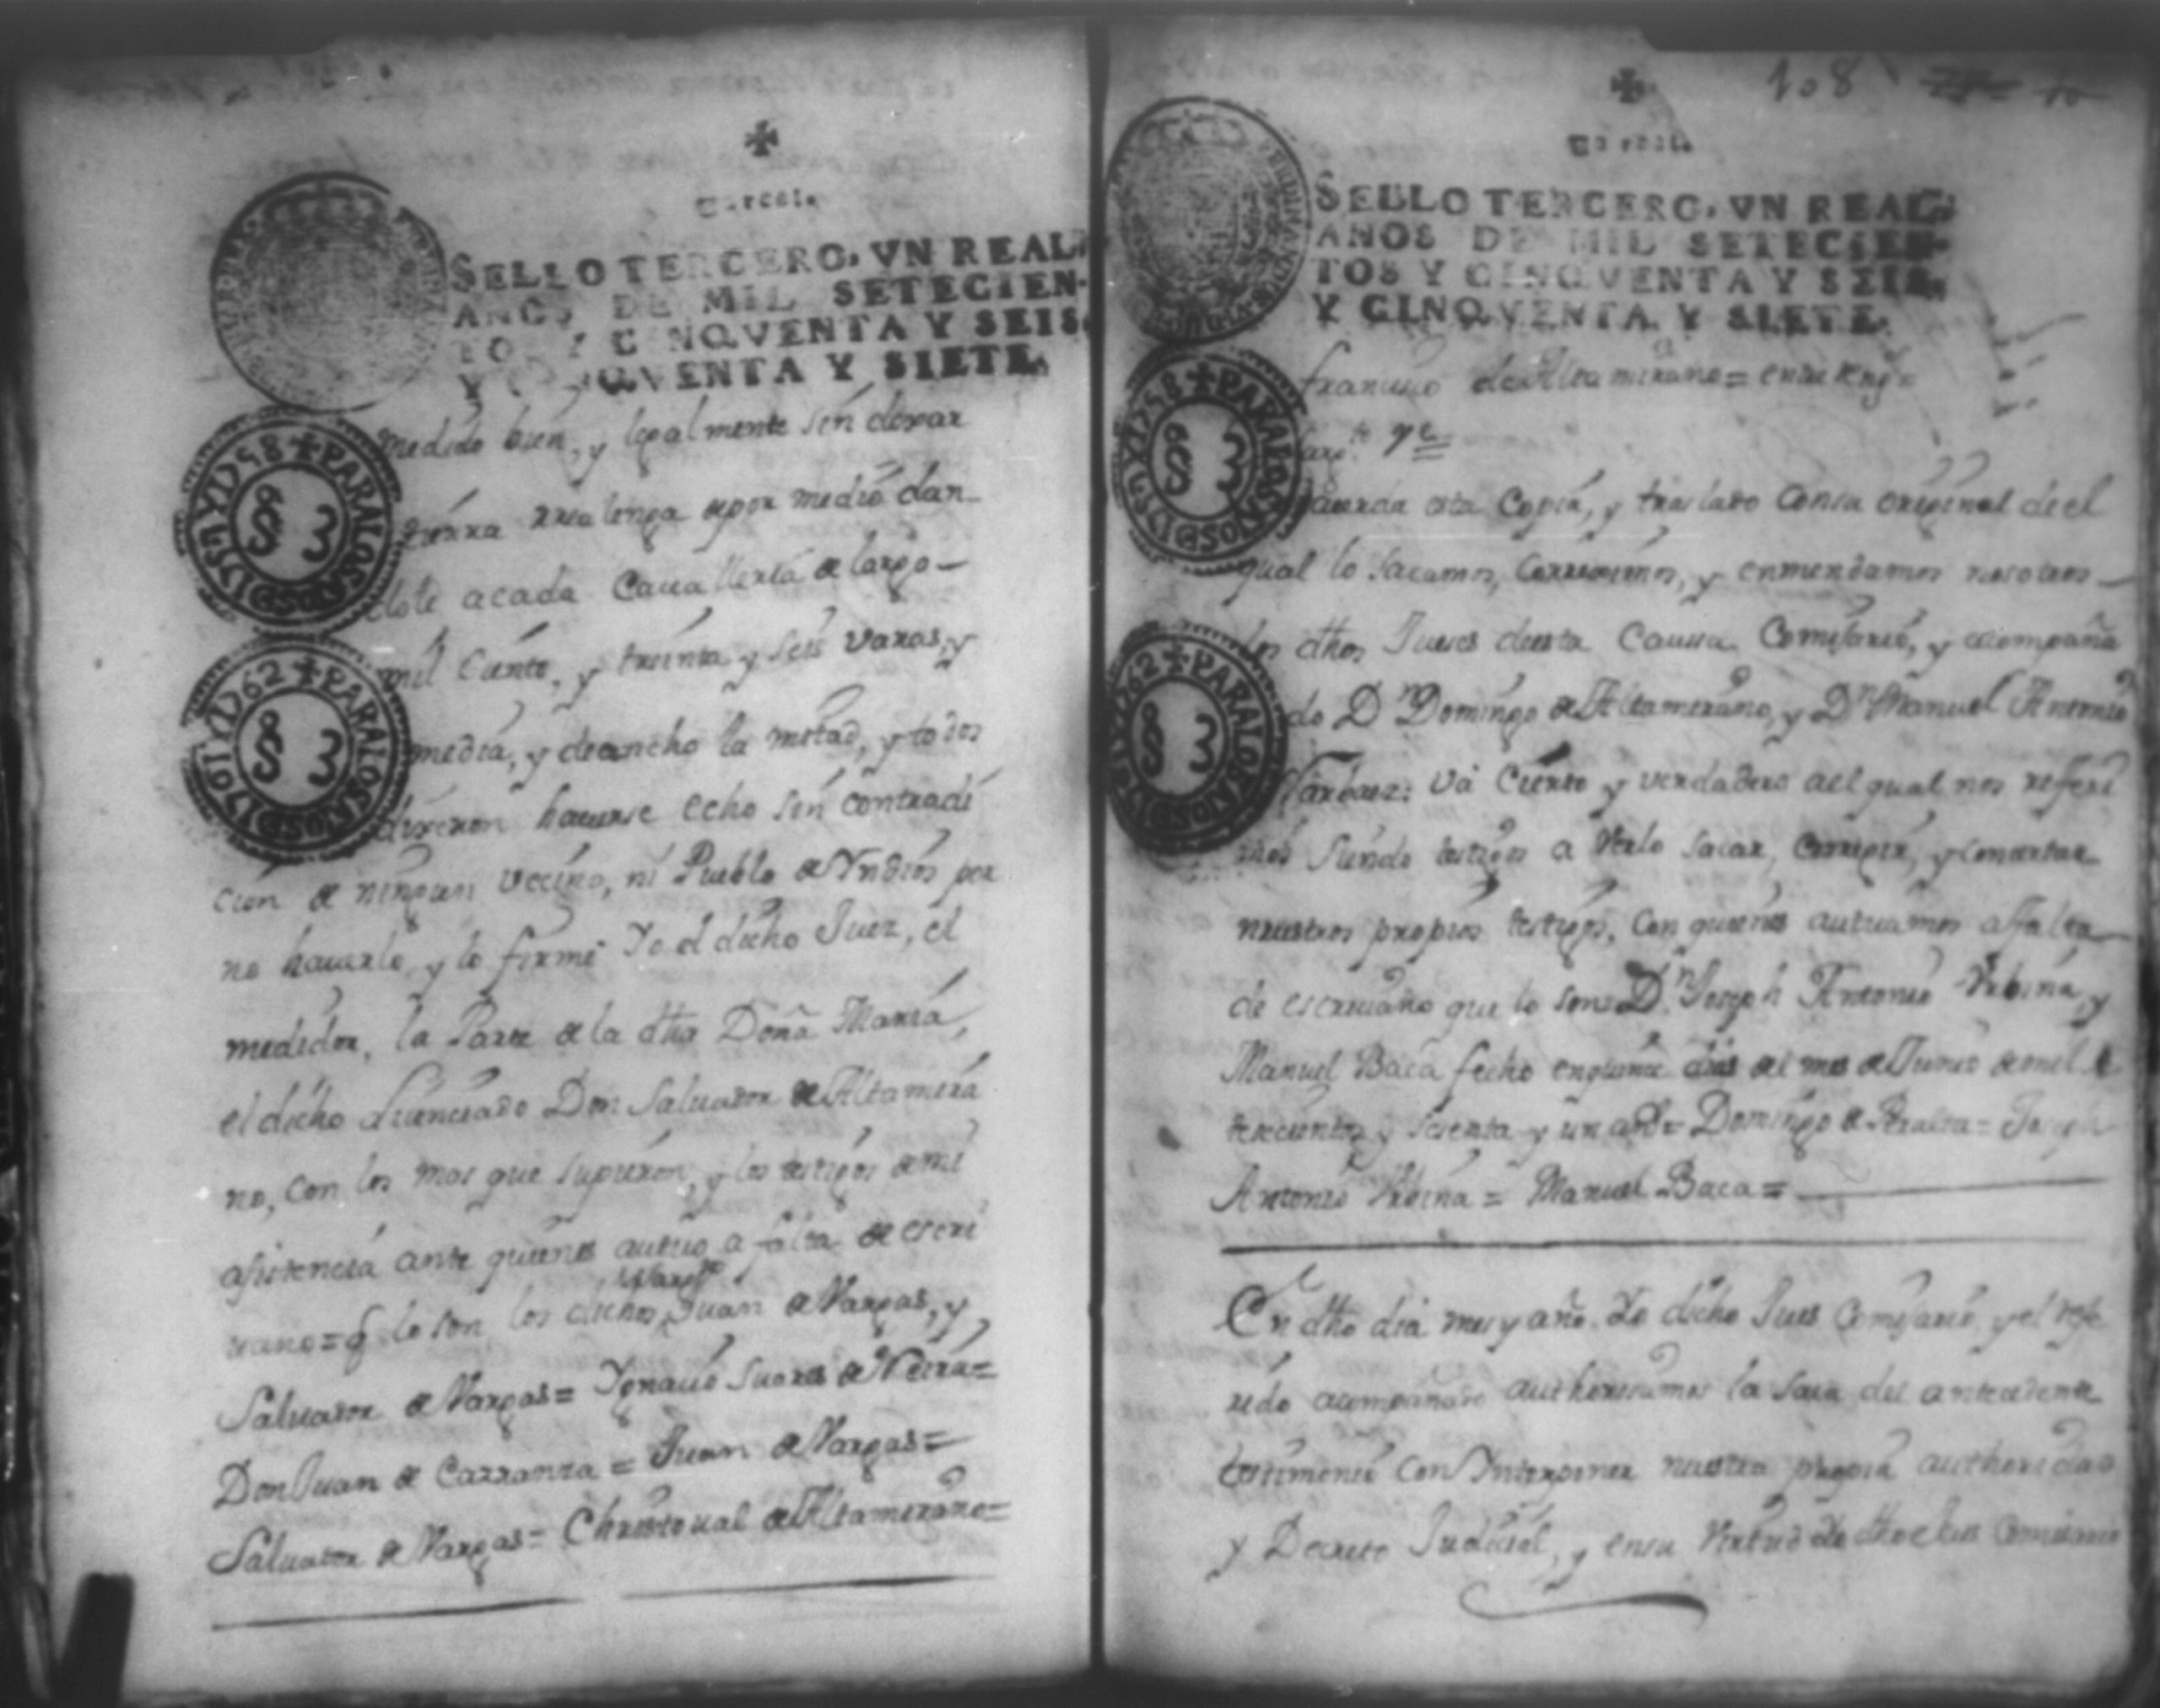 SELLO TERCERO, VN REAL,
AÑOS DE MIL SETECIEN-
TOS Y CINQVENTA Y SEIS,
Y CINQVENTA Y SIETE.
medido bien, y legalmente sin dexar
tierra realenga de por medio dan
dole a cada Cavalleria de largo
mil Ciento, y treinta y seis varas, y
media, y de ancho la mitad, y todos
dixeron haverse echo sin contradi
cion de ningun vecino, ni Pueblo de Yndios por
no haverlo, y lo firmé Yo el dicho Juez, el
medidor, la Parte de la dha Doña Maria,
el dicho Licenciado Don Salvador de Altamira
no, con los mas que supieron, y los testigos de mi
asistencia ante quienes autuo a falta de escri
vano = q lo son los dichos Juan de Vargas, y
Salvador de Vargas = Ygnacio Suares de Neira =
Don Juan de Carranza = Juan de Vargas =
Salvador de Vargas = Christoval de Altamirano =
PARALOS
PARALOS
108
SELLO TERCERO, VN REAL,
AÑOS DE MIL SETECIEN-
TOS Y CINQVENTA Y SEIS,
Y CINQVENTA Y SIETE.
francisco de Altamirano =
Concuerda esta Copia, y traslado con su original de el
qual lo sacamos, Correximos, y enmendamos nosotros
los dhos Jueses de esta Caussa Comisario, y acompaña
do Dn Domingo de Altamirano, y Dn Manuel Antonio
Narbaez: va Cierto y verdadero a el qual nos referi
mos siendo testigos a verlo sacar, Corregir, y Concertar
nuestros propios testigos, Con quienes autuamos a falta
de escrivano que lo son Dn Joseph Antonio Urbina, y
Manuel Baca fecho en quinze dias del mes de Junio de mil s
tesientos y sesenta y un años = Domingo de Peralta = Joseph
Antonio Urbina = Manuel Baca =
En dho dia mes y año. Yo dicho Jues Comisario, y el refe
rido acompañado authorisamos la saca del antecedente
testimonio Con Ynterponer nuestra propia authoridad
y Decreto Judicial, y en su virtud Yo dho Jues Comisario
PARALOS
PARALOS